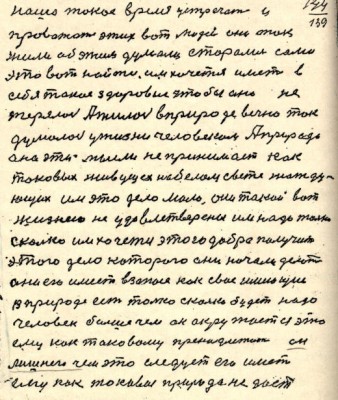 наша такое время устречат и 144
провожат этих вот людей они так 139
жили об этим думали старалися сами
это вот найти, им хочется иметь в
себя такое здоровье чтобы оно не
терялося А жилося в природе вечно так
думалося у жизни человеком А природа
она эти мысли не принимает как
таковых живущих на белом свете жажду-
ющих им это дело мало, они такой вот
жизнею не удовлетварены им надо только
сколко им хочется этого добра получит
этого дело которого они начали делать
они его имеют взапасе как свое
в природе ест толко сколко будет надо
человек болше чем он окружается это
ему как таковому принадлежит он
лишнего чем это следует его имет
ему как таковы природа не даст